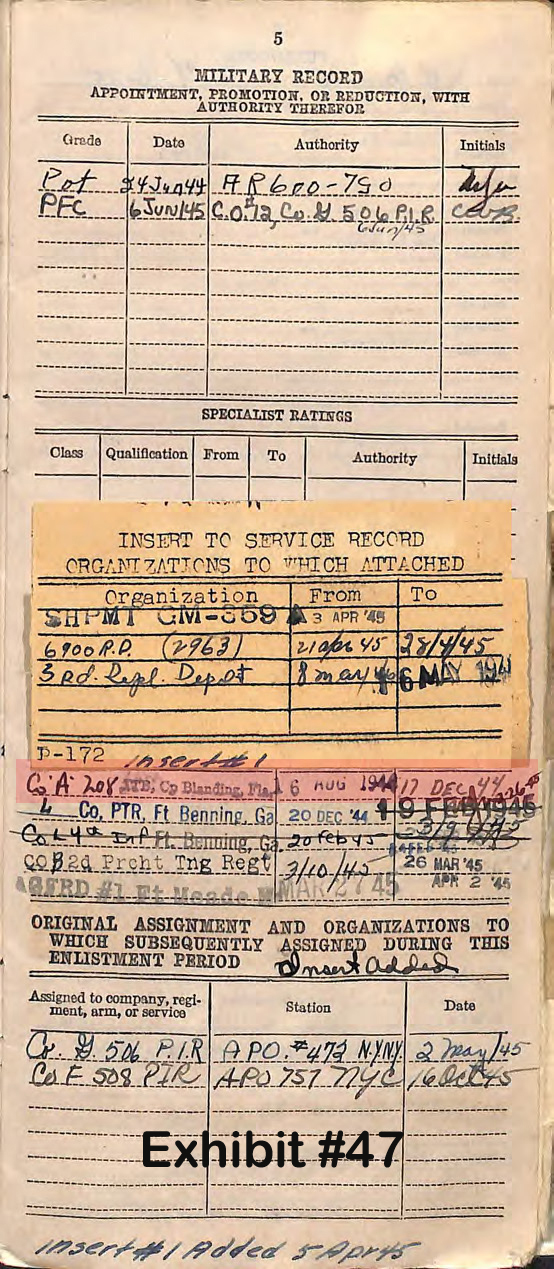 5
MILITARY RECORD
APPOINTMENT, PROMOTION, OR REDUCTION, WITH
AUTHORITY THEREFOR
Grade Date Authority Initials
Pvt 24Jun44 AR600-750
PFC 6Jun/45 C.O.#12, Co. G 506 P.I.R. CWB
6Jun/45
SPECIALIST RATINGS
Class Qualification From To Authority Initials
INSERT TO SERVICE RECORD
ORGANIZATIONS TO WHICH ATTACHED
Organization From To
SHPMT GM-359 A 3 APR '45
6900 R.P. (2963) 21 apr 45 28/4/45
3rd. Repl. Depot 8 may 6 MAY 194
D-172 Insert #1
Co A 208 ITB, Cp Blanding, Fla, 16 AUG 1944 17 DEC 44
L Co, PTR, Ft Benning, Ga 20 DEC '44 19 FEB 1945
Co L 4th Inf Ft. Benning, Ga 20 Feb 45
CO B 2d Prcht Tng Regt 3/10/45 26 MAR '45
AGFRD #1 Ft Meade MAR 27 45 APR 2 '45
ORIGINAL ASSIGNMENT AND ORGANIZATIONS TO
WHICH SUBSEQUENTLY ASSIGNED DURING THIS
ENLISTMENT PERIOD Insert added
Assigned to company, regi-
ment, arm, or service Station Date
Co. G. 506 P.I.R A.P.O. #472 N.Y.N.Y. 2 May/45
Co F 508 PIR APO 757 NYC 16 Oct 45
Exhibit #47
Insert #1 Added 5 Apr 45